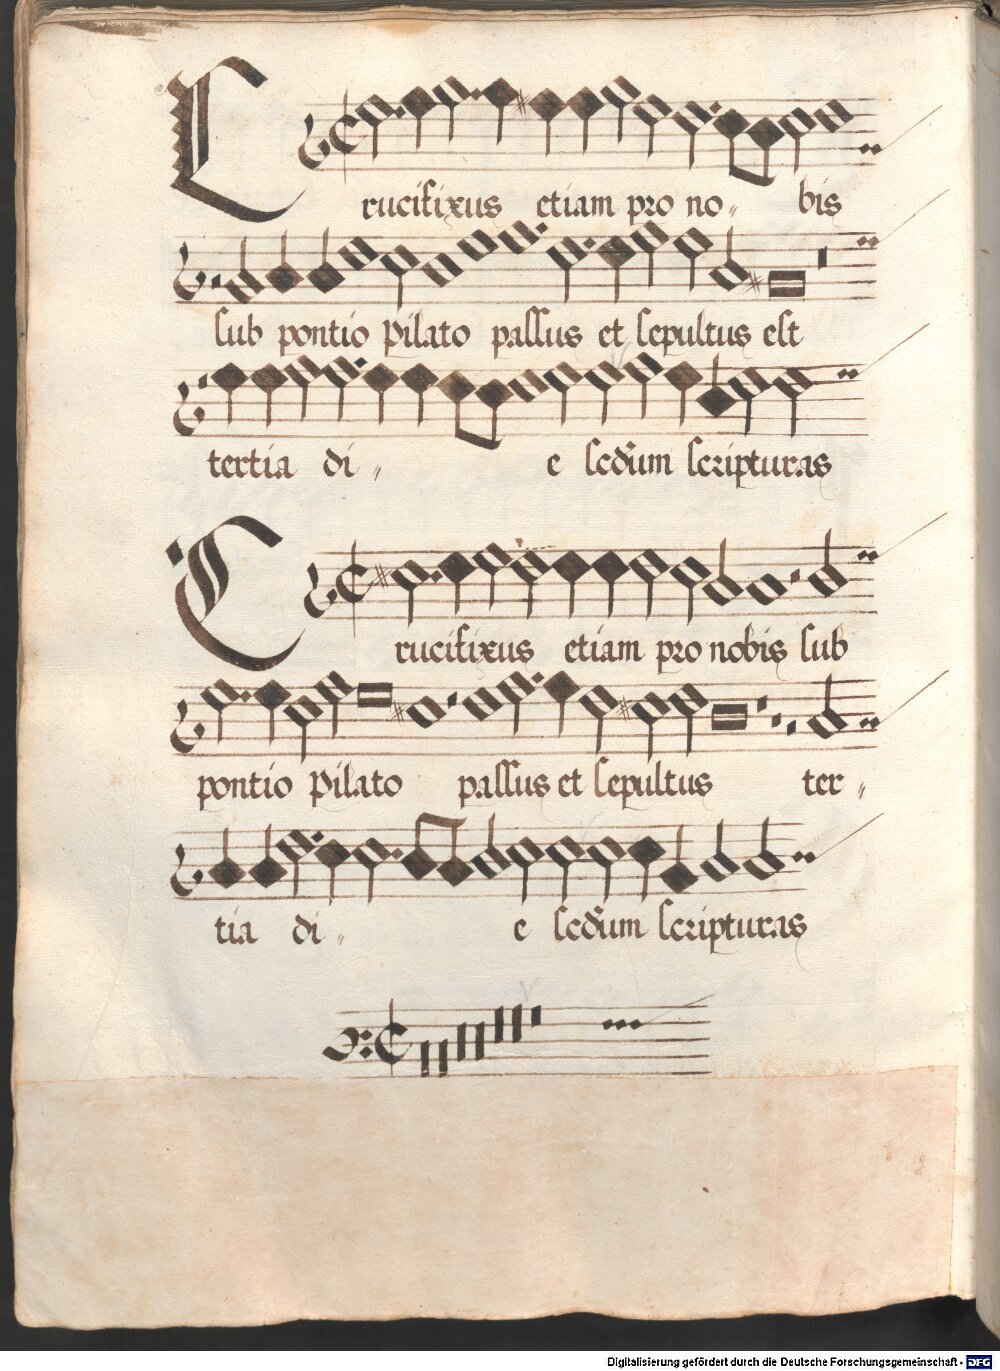 Crucifixus etiam pro no〃 bis
sub pontio Pilato passus et sepultus est
tertia di〃 e scdum scripturas
Crucifixus etiam pro nobis sub
pontio Pilato passus et sepultus ter〃
tia di〃 e scdum scripturas
Digitalisierung gefördert durch die Deutsche Forschungsgemeinschaft - DFG